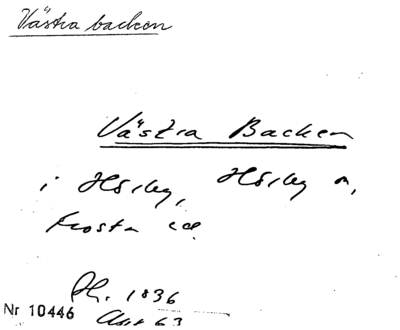 Västra backen
Västra Backen
i Hörby, Hörby s,
Frosta hd.
Ph. 1836
Nr 10446
Akt 63